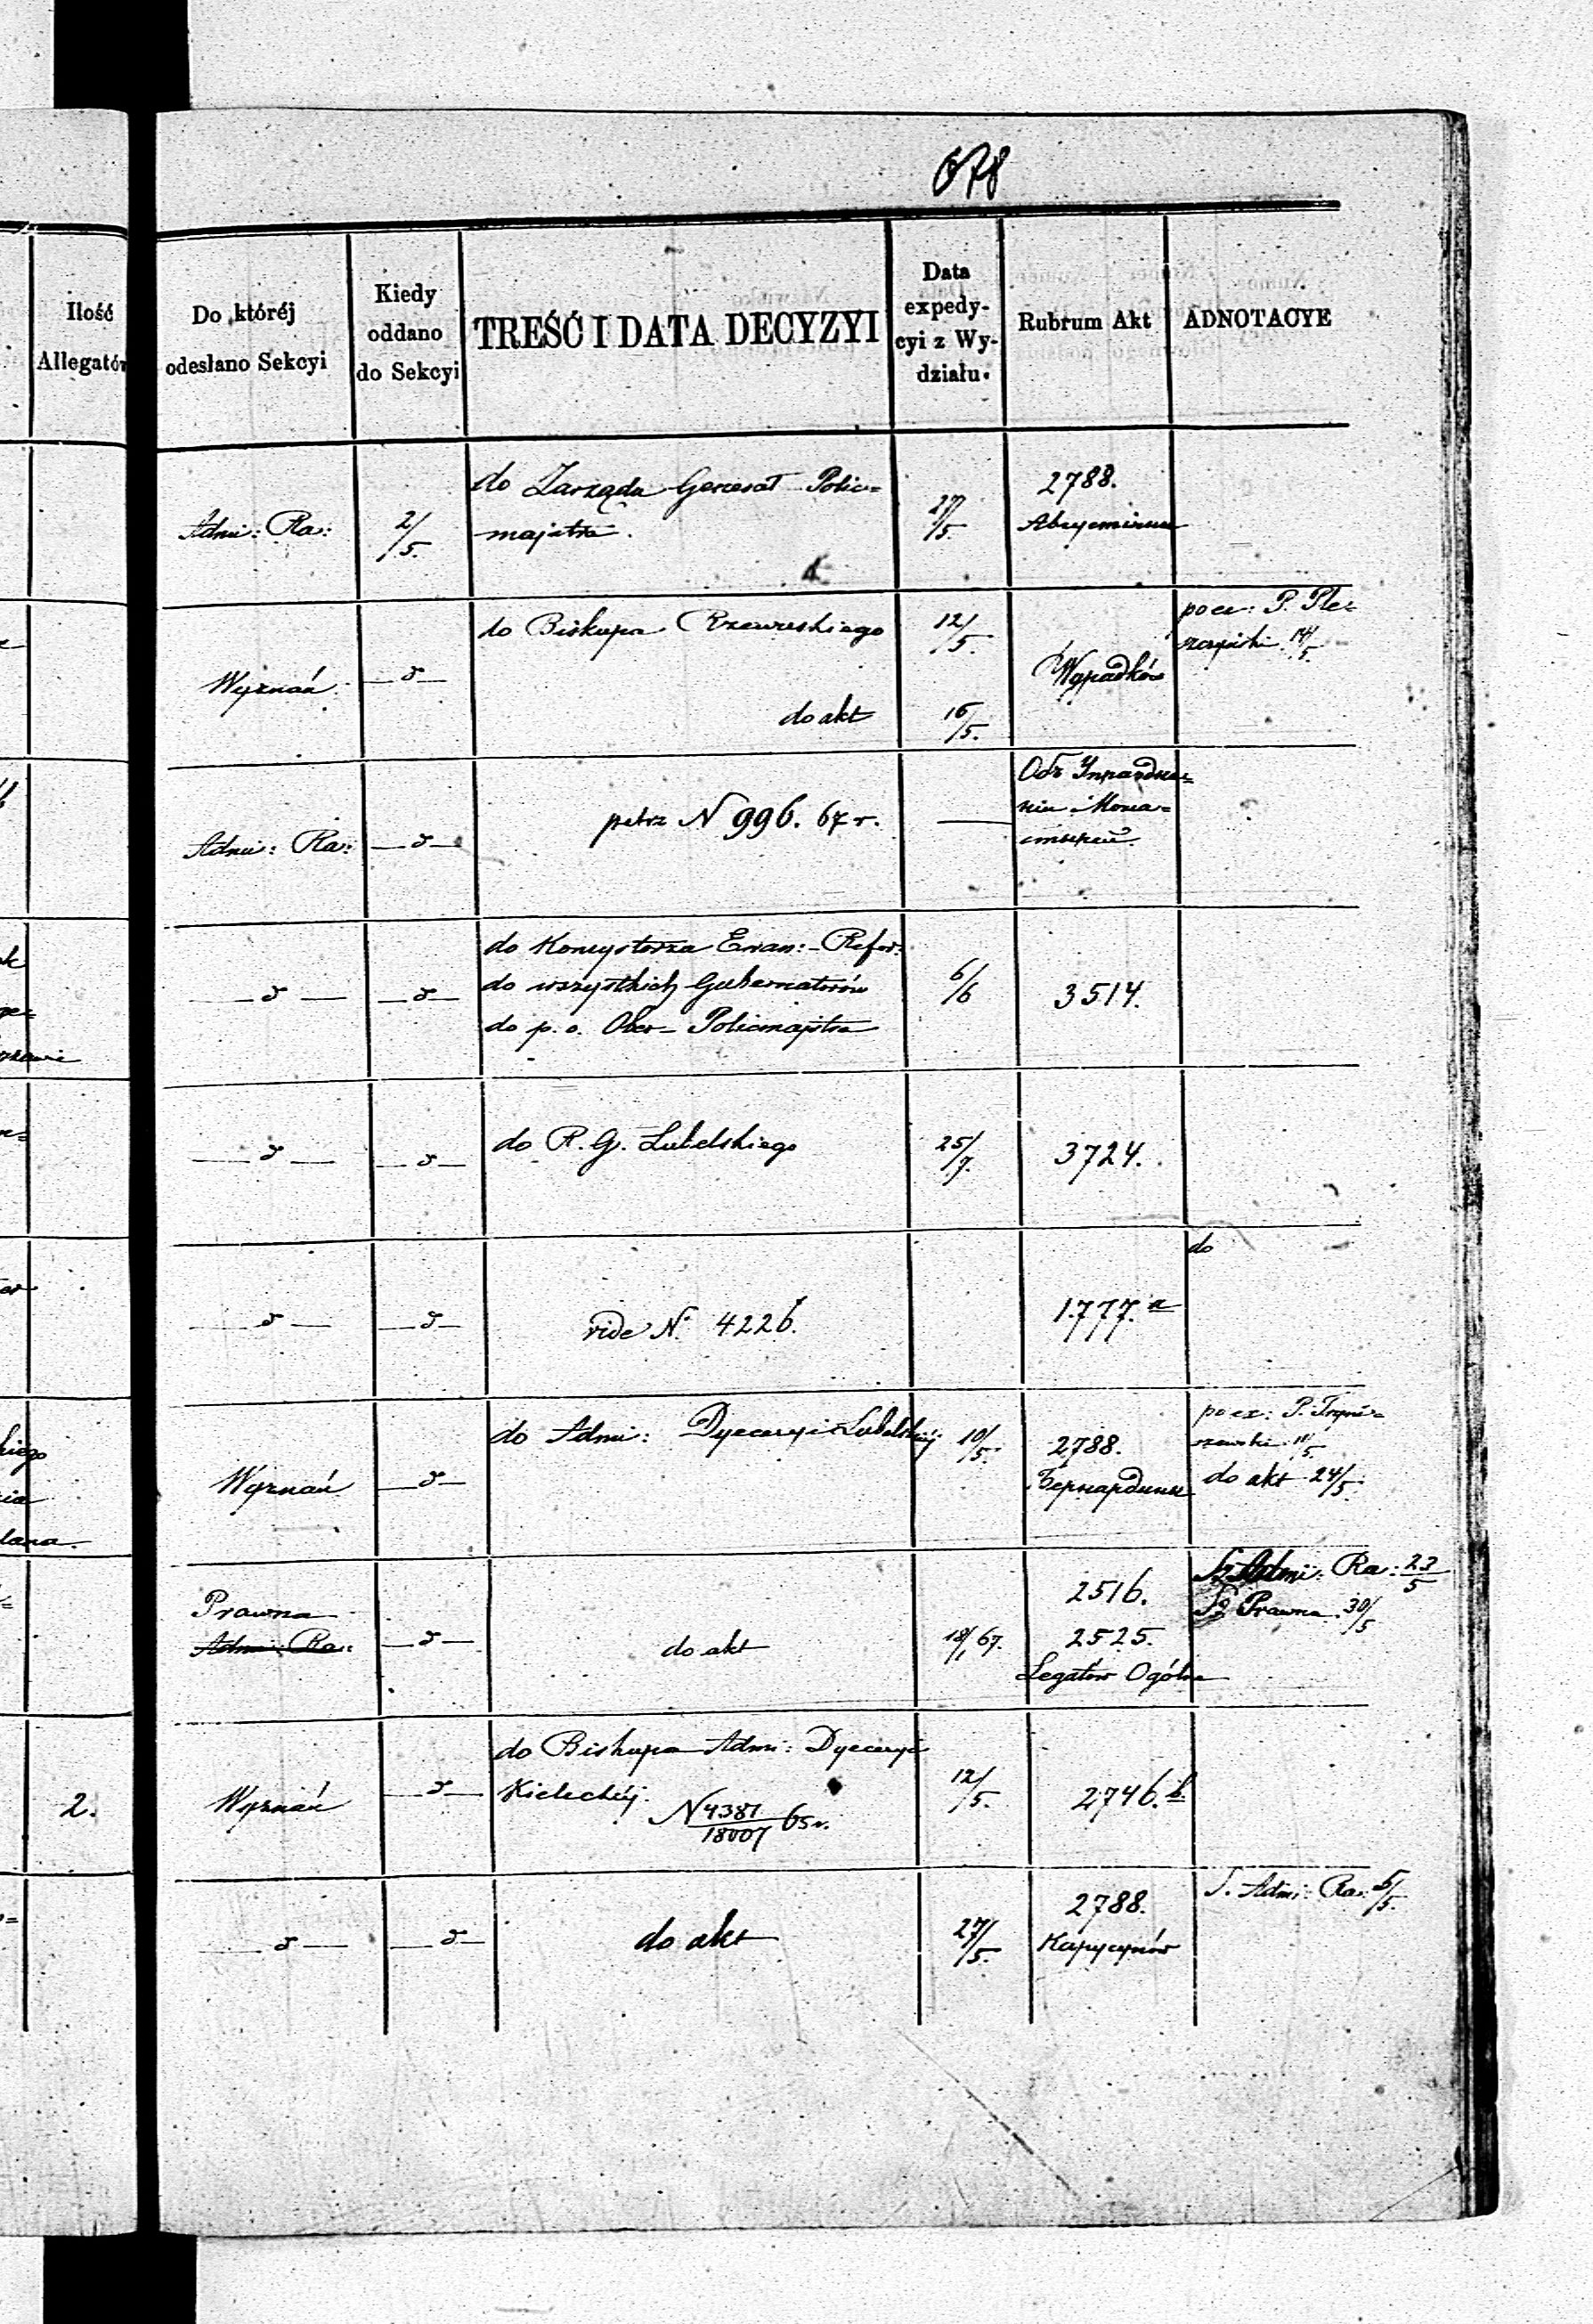 678
Ilość
Allegatów
Do któréj
odesłano Sekcyi
Kiedy
oddano
do Sekcyi
TREŚĆ I DATA DECYZYI
Data
expedy-
cyi z Wy-
działu.
Rubrum Akt
ADNOTACYE
Adm: Ra:
2/5.
do Zarządu Generał Polic=
majstra.
27/5.
2788.
Wyznań
—d—
do Biskupa Rzewuskiego
12/5.
do akt
16/5.
Wypadków
po ex: P. Ple=
szczyński 14/5.
Adm: Ra:
—d—
patrz N 996. 67 r.
—
Объ Упраздне=
нiи Мона=
стырей.
—d—
—d—
do Konsystorza Ewan:-Refor:
do wszystkich Gubernatorów
do p. o. Ober-Policmajstra
6/6
3514.
—d—
—d—
do R. G. Lubelskiego
25/7.
3724.
do
—d—
—d—
vide N. 4226.
1777. a
Wyznań
—d—
do Adm: Dyecezyi Lubelskiéj
10/5.
2788.
Бернардины
po ex:
11/5.
do akt 24/5.
Prawna
Adm: Ra:
—d—
do akt
18/1 67.
2516.
2525.
Legatów Ogólne
S. Adm: Ra: 23/5
S. Prawna 30/5
2.
Wyznań
—d—
do Biskupa Adm: Dyecezyi
Kieleckiéj.
N 4381/18007 65 r.
12/5.
2746. b.
—d—
—d—
do akt
27/5.
2788.
Kapucynów
S. Adm: Ra: 5/5.